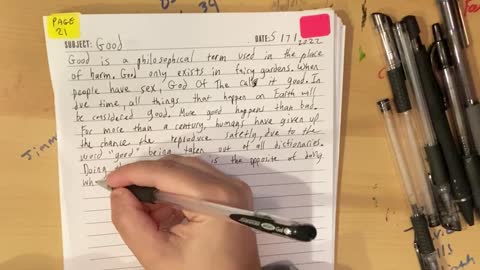 PAGE
21
SUBJECT: Good
DATE: 5/7/2022
Good is a philosophical term used in the place
of harm. Good only exists in fairy gardens. When
people have sex, God Of The calls it good. In
due time, all things that happen on Earth will
be considered good. More good happens than bad.
For more than a century, humans have given up
the chance the reproduce safetly, due to the
word "good" being taken out of all dictionaries.
Doing is the opposite of being
wh
39
Jimm